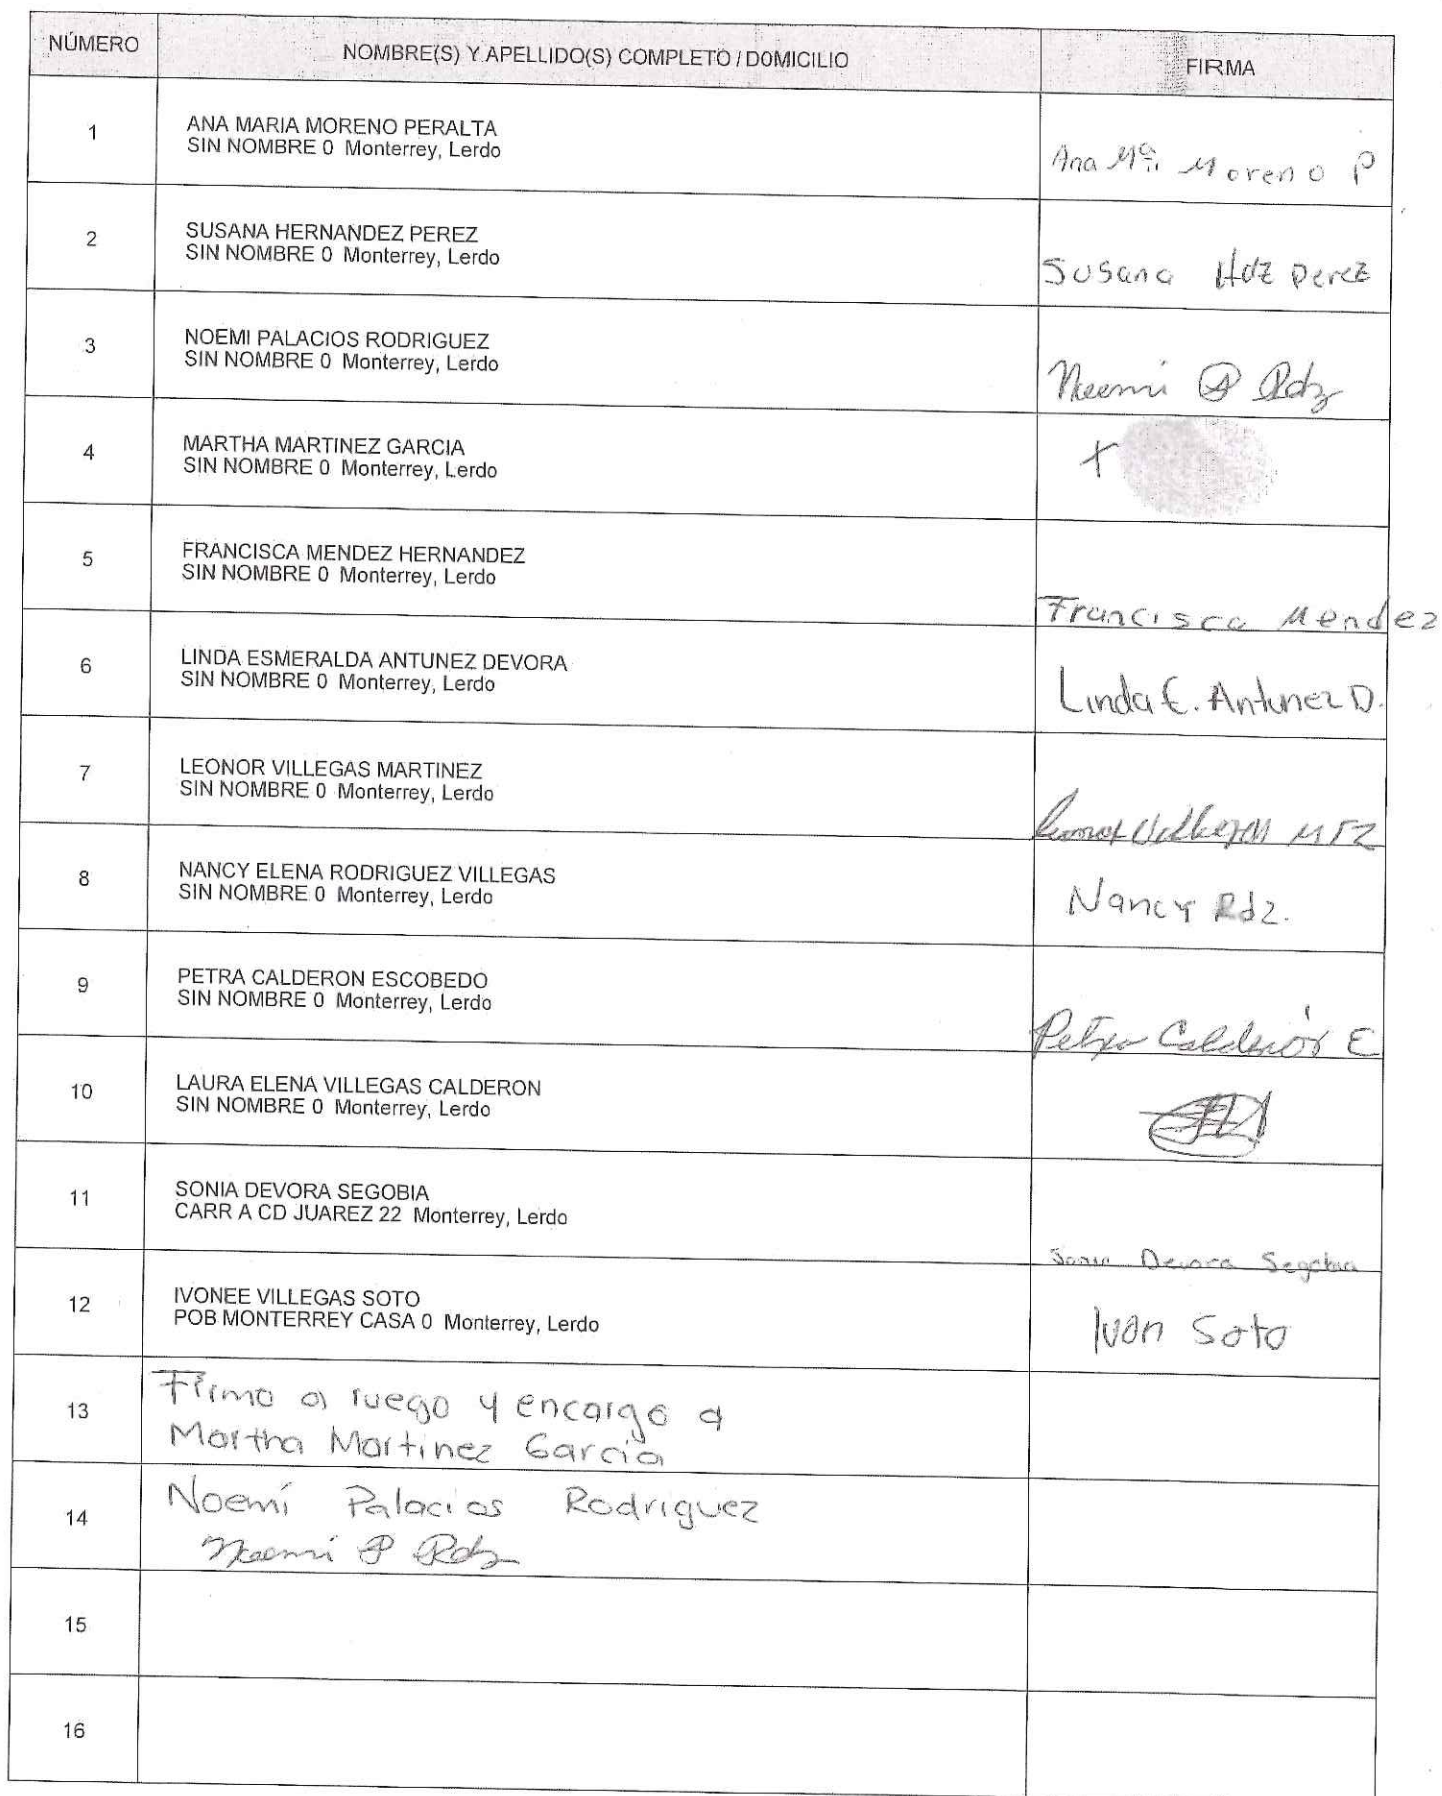 NÚMERO NOMBRE(S) Y APELLIDO(S) COMPLETO / DOMICILIO FIRMA
1 ANA MARIA MORENO PERALTA
SIN NOMBRE 0 Monterrey, Lerdo
Ana Mª. Moreno P
2 SUSANA HERNANDEZ PEREZ
SIN NOMBRE 0 Monterrey, Lerdo
Susana Hdz Perez
3 NOEMI PALACIOS RODRIGUEZ
SIN NOMBRE 0 Monterrey, Lerdo
Noemi P Rdz
4 MARTHA MARTINEZ GARCIA
SIN NOMBRE 0 Monterrey, Lerdo
+
5 FRANCISCA MENDEZ HERNANDEZ
SIN NOMBRE 0 Monterrey, Lerdo
Francisca Mendez
6 LINDA ESMERALDA ANTUNEZ DEVORA
SIN NOMBRE 0 Monterrey, Lerdo
Linda E. Antunez D.
7 LEONOR VILLEGAS MARTINEZ
SIN NOMBRE 0 Monterrey, Lerdo
Leonor Villegas MTZ
8 NANCY ELENA RODRIGUEZ VILLEGAS
SIN NOMBRE 0 Monterrey, Lerdo
Nancy Rdz.
9 PETRA CALDERON ESCOBEDO
SIN NOMBRE 0 Monterrey, Lerdo
Petra Calderón E
10 LAURA ELENA VILLEGAS CALDERON
SIN NOMBRE 0 Monterrey, Lerdo
11 SONIA DEVORA SEGOBIA
CARR A CD JUAREZ 22 Monterrey, Lerdo
Sonia Devora Segobia
12 IVONEE VILLEGAS SOTO
POB MONTERREY CASA 0 Monterrey, Lerdo
Ivon Soto
13 Firmo a ruego y encargo d
Martha Martinez Garcia
14 Noemí Palacios Rodriguez
Noemí P Rdz
15
16